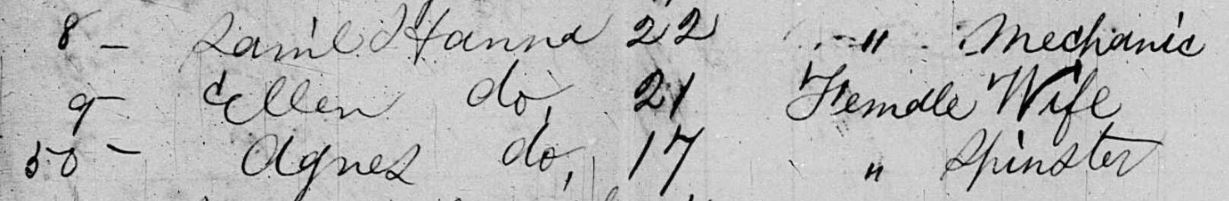 8 – Saml Hanna 22 " Mechanic
9 – Ellen do, 21 Female Wife
50 – Agnes do, 17 " Spinster